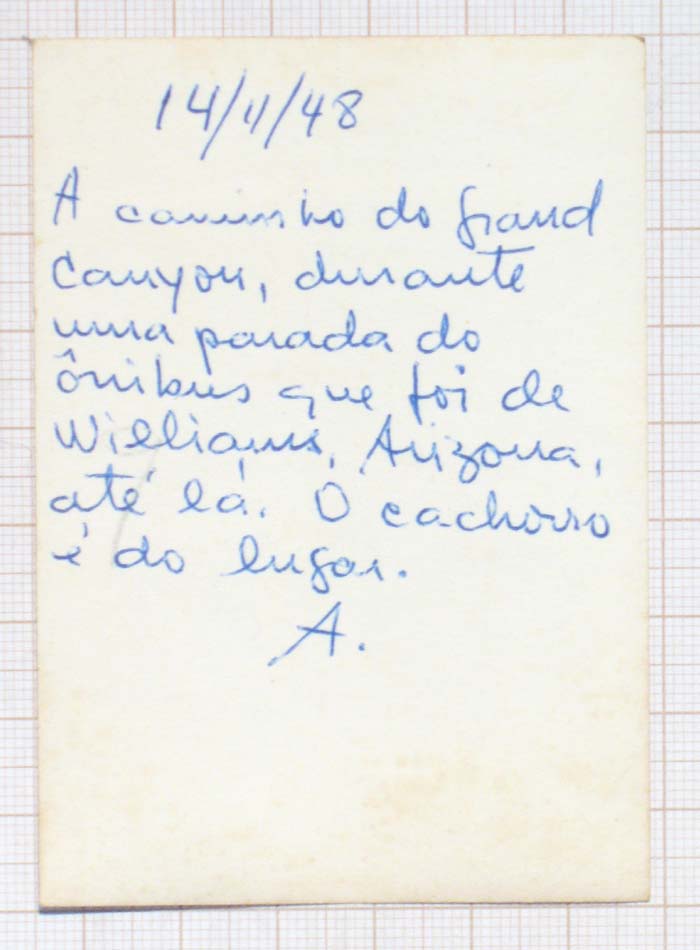 14/11/48
A caminho do Grand
Canyon, durante
uma parada do
ônibus que foi de
Williams, Arizona,
até lá. O cachorro
é do lugar.
A.